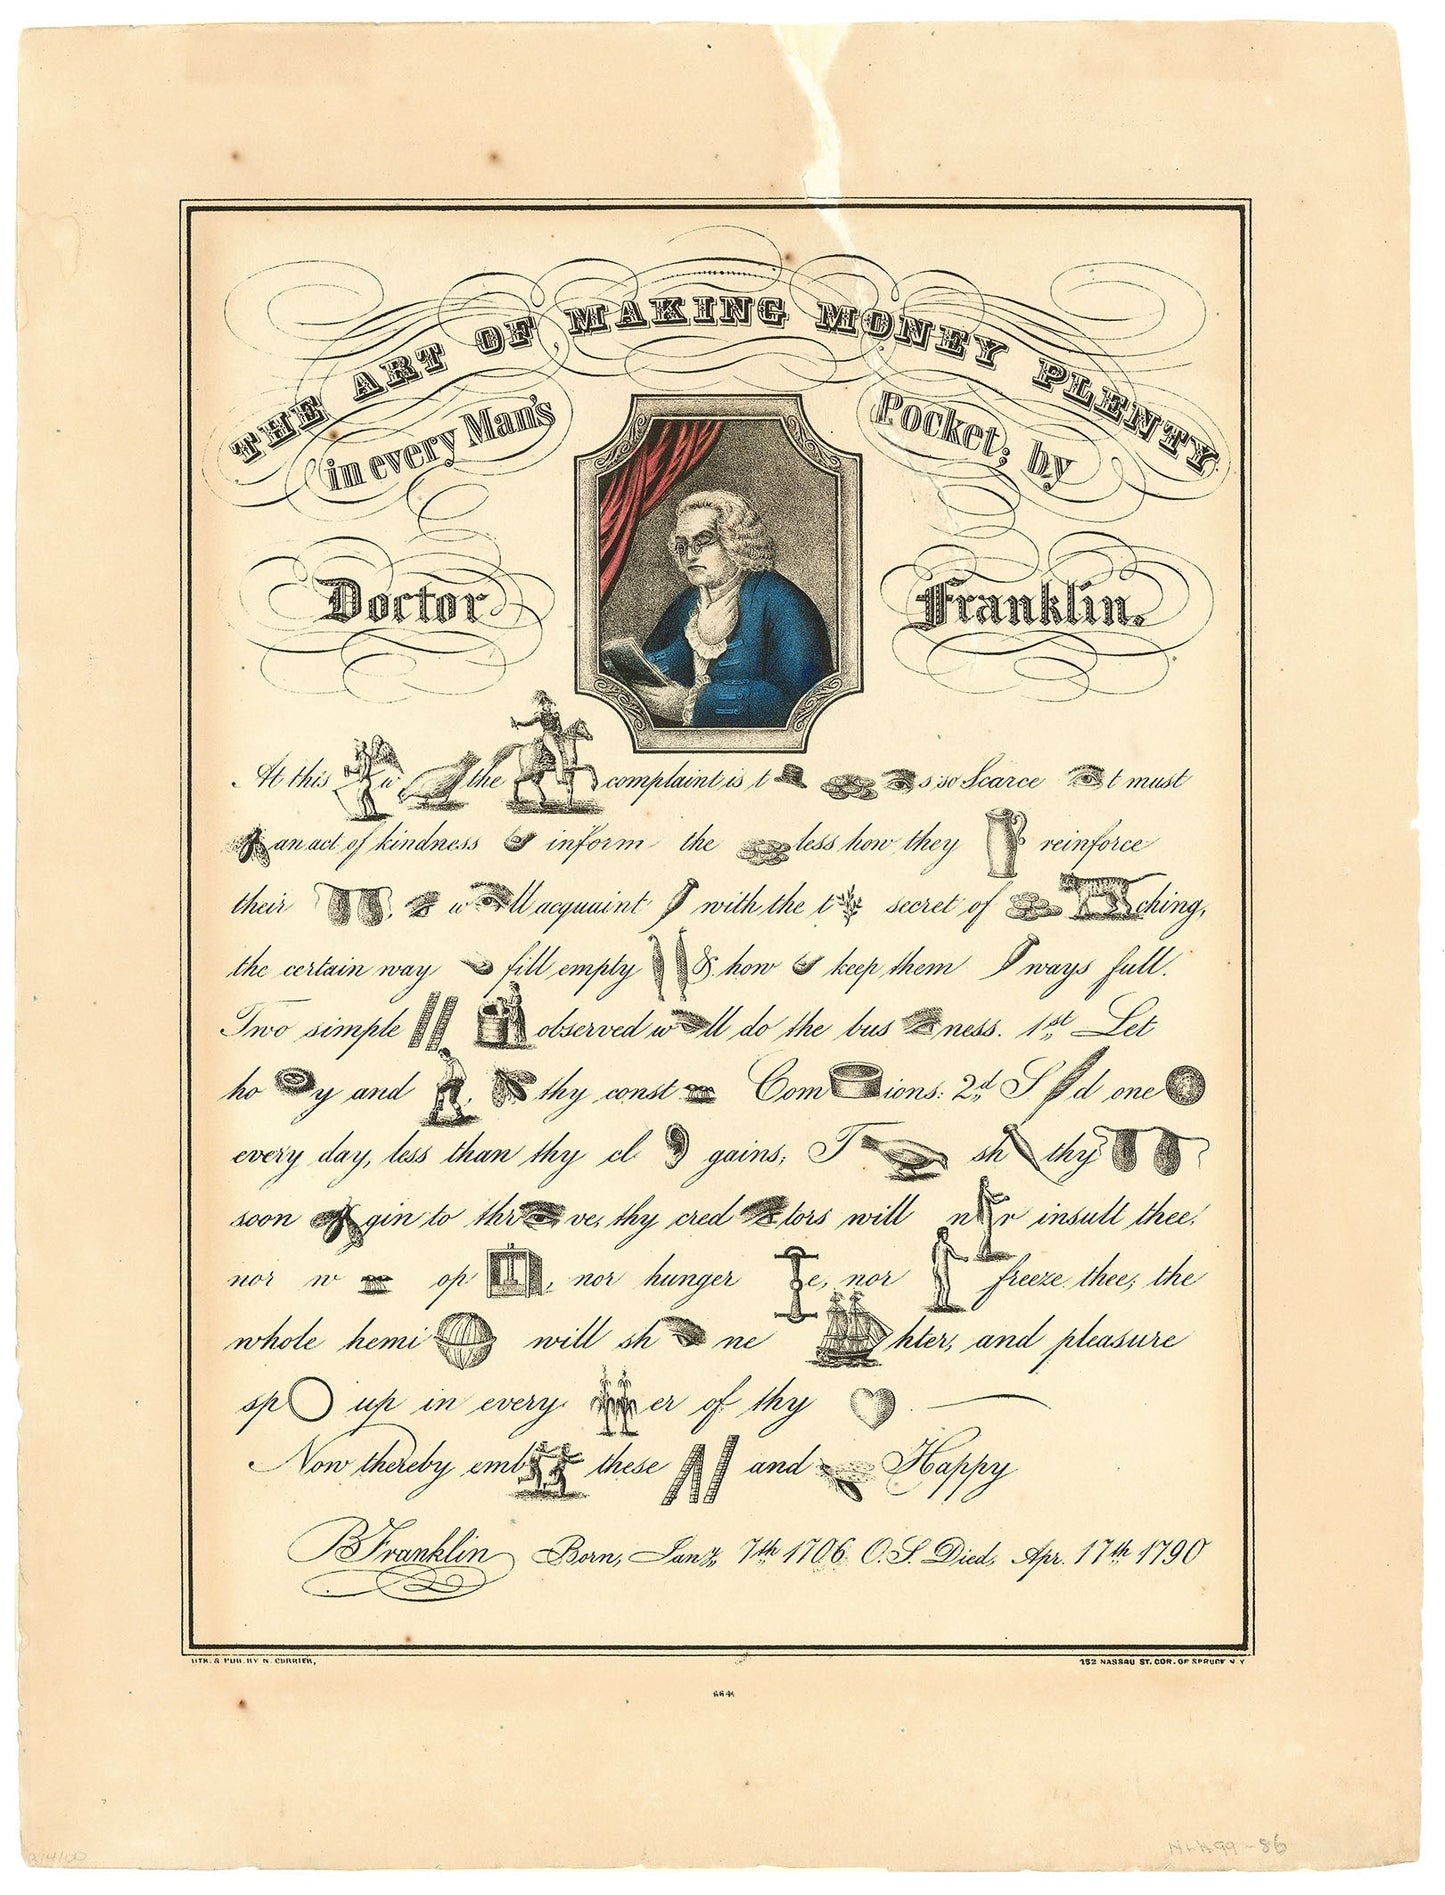 THE ART OF MAKING MONEY PLENTY
in every Man's Pocket; by
Doctor Franklin.
At this w the complaint is t s so Scarce t must
an act of kindness inform the less how they reinforce
their w ll acquaint with the t secret of ching,
the certain way fill empty & how keep them ways full.
Two simple observed w ll do the bus ness. 1st Let
ho y and thy const Com ions: 2d S d one
every day, less than thy cl gains; T sh thy
soon gin to thr ve, thy cred tors will n r insult thee.
nor w op , nor hunger e, nor freeze thee; the
whole hemi will sh ne hter, and pleasure
sp up in every er of thy
Now thereby emb these and Happy
B Franklin Born, Jany. 7th 1706. O.S. Died, Apr. 17th 1790
LITH. & PUB. BY N. CURRIER,
152 NASSAU ST. COR. OF SPRUCE N.Y